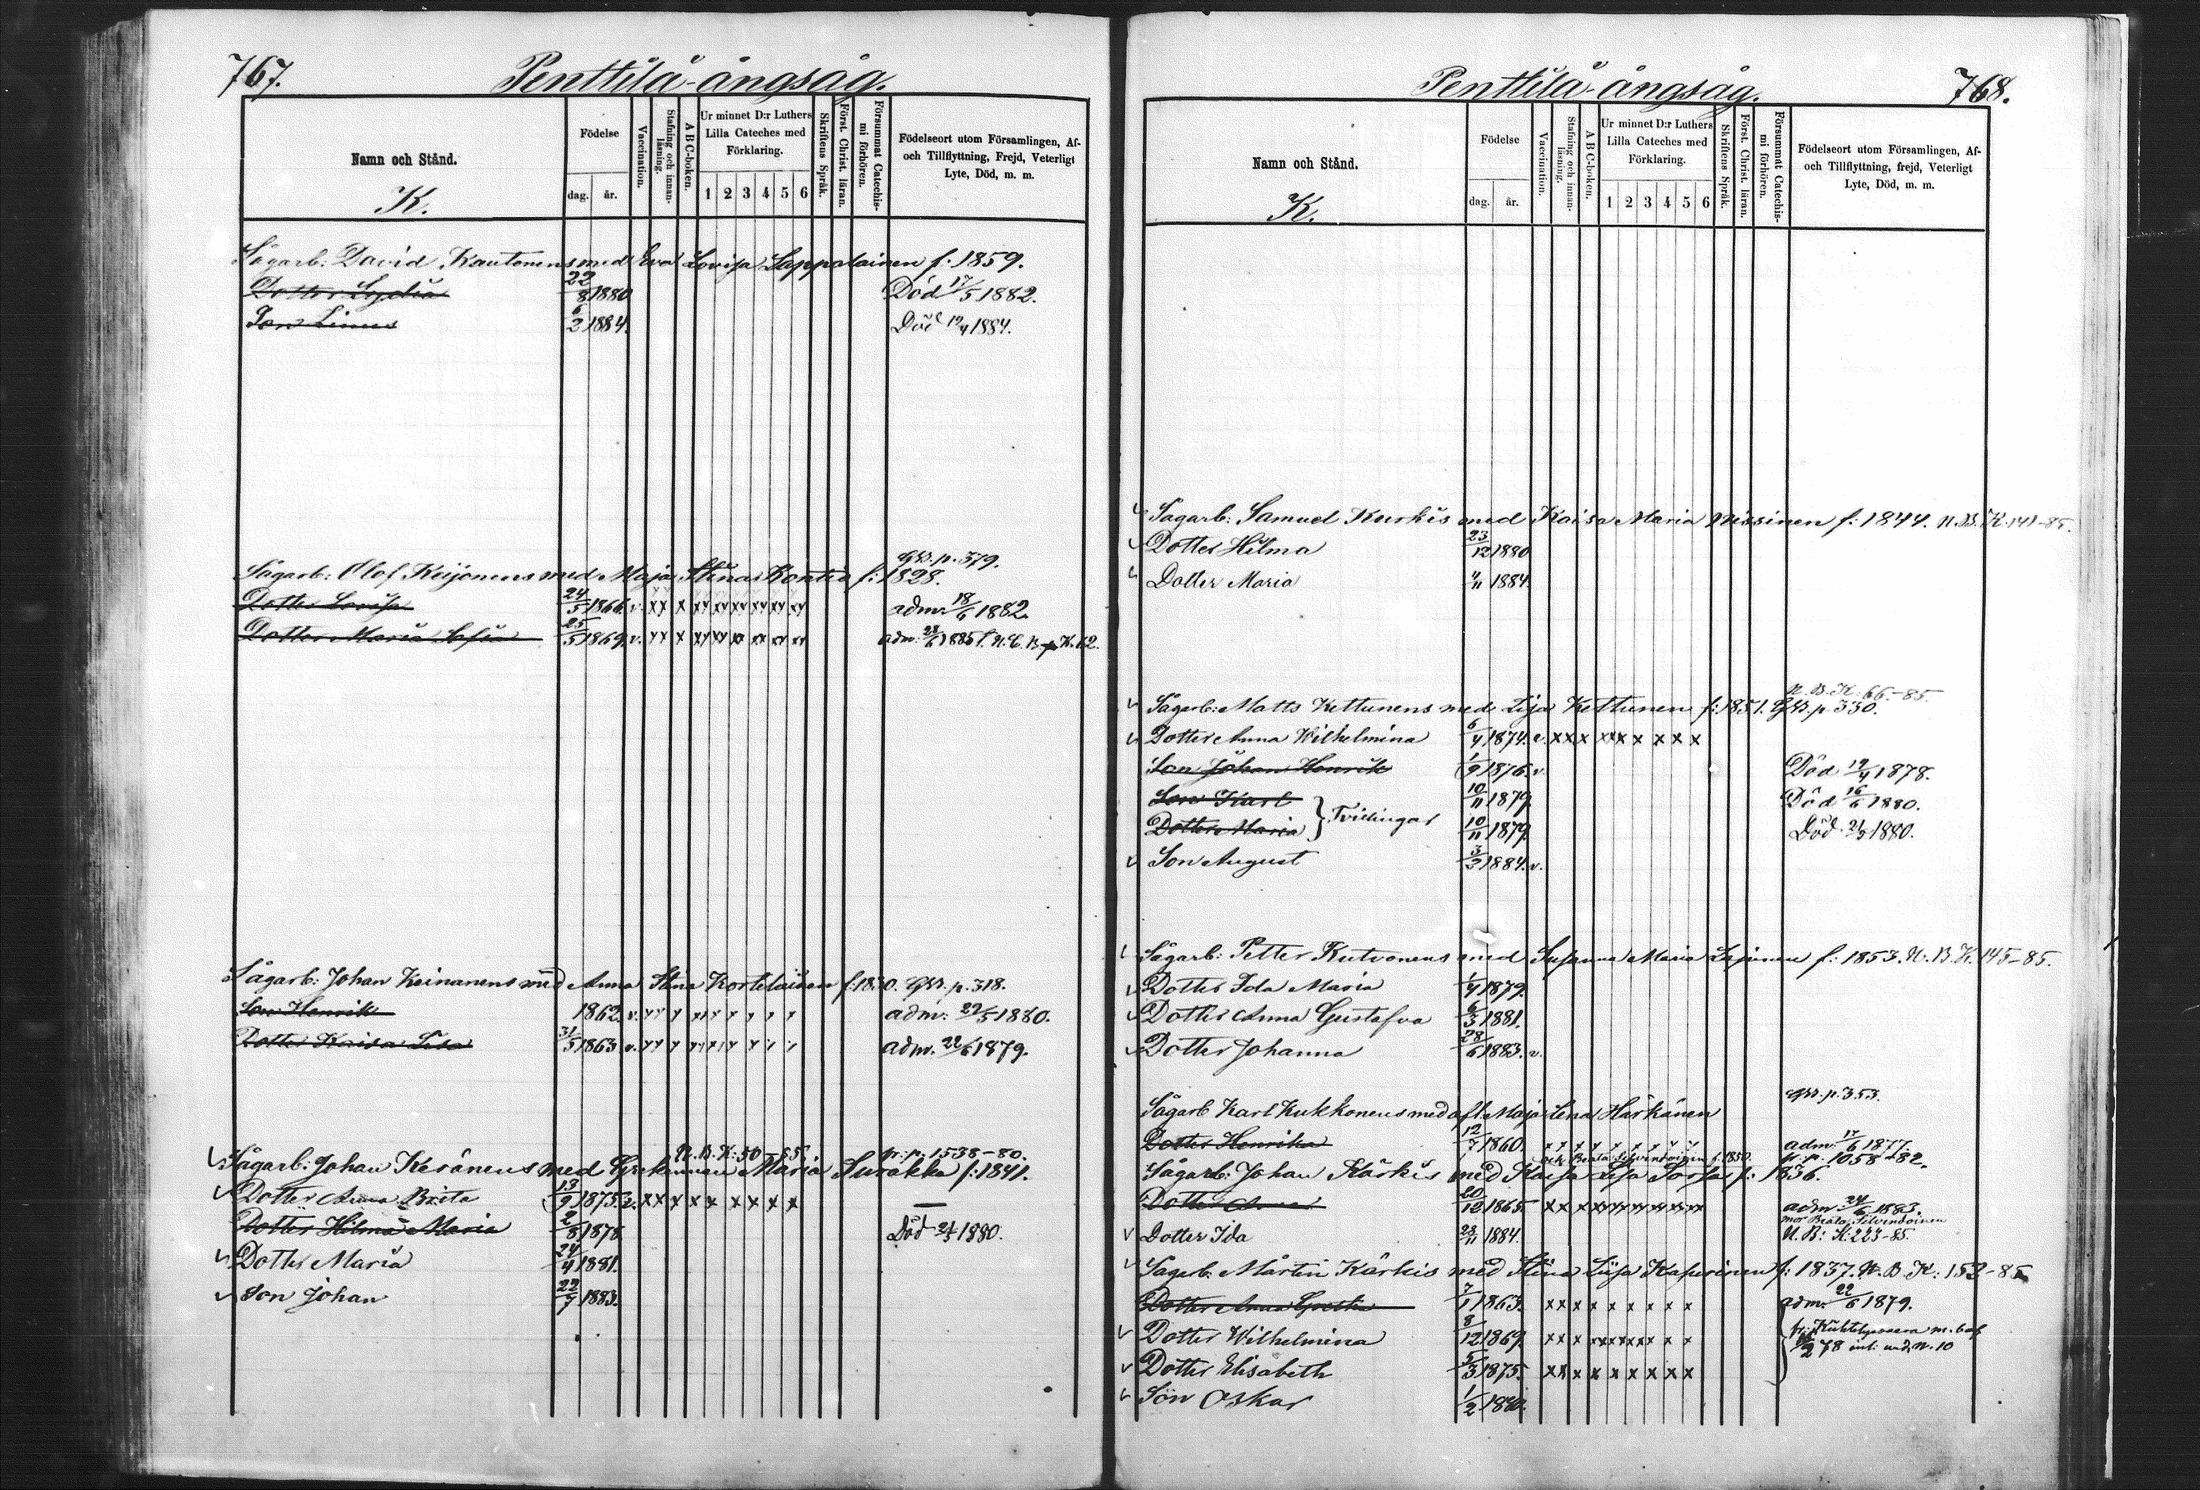 767.
Penttilä ångsåg.
Namn och Stånd.
K.
Födelse
dag.
år.
Vaccination.
Stafning och innan-läsning.
A B C-boken.
Ur minnet D:r Luthers
Lilla Cateches med
Förklaring.
1 2 3 4 5 6
Skriftens Språk.
Först. Christ. läran.
Försummat Catechis-
mi förhören.
Födelseort utom Församlingen, Af-
och Tillflyttning, Frejd, Veterligt
Lyte, Död, m. m.
Sågarb: David Kautonens med Eva Lovisa Lappalainen f: 1859.
Dotter Lydia 22/8 1880 Död 17/5 1882.
Son Linus 6/2 1884. Död 19/4 1884.
GB. p. 379.
Sågarb: Olof Keijonens med Maja Stina Kontio f: 1828.
Dotter Lovisa 24/5 1866. v. xx x xx xx xx xx xx xx adm: 18/6 1882.
Dotter Maria Sofia 25/5 1869. v. xx x xx xx xx xx xx xx adm. 28/6 1885
Sågarb: Johan Keinanens med Anna Stina Kortelainen f: 1830. GB. p. 318.
Son Henrik 1862. v. adm: 22/5 1880.
Dotter Kaisa Lisa 31/5 1863 v. adm. 22/6 1879.
N. B. K: 50-85. fr. p. 1538-80.
Sågarb: Johan Keränens med Maria Surakka f: 1841.
Dotter Anna Brita 13/9 1873. v. xx x x x x x x x —
Dotter Hilma Maria 2/8 1878 Död 21/5 1880.
Dotter Maria 24/4 1881.
Son Johan 22/7 1883.
Penttilä ångsåg.
768.
Namn och Stånd.
K.
Födelse
dag.
år.
Vaccination.
Stafning och innan-läsning.
A B C-boken.
Ur minnet D:r Luthers
Lilla Cateches med
Förklaring.
1 2 3 4 5 6
Skriftens Språk.
Först. Christ. läran.
Försummat Catechis-
mi förhören.
Födelseort utom Församlingen, Af-
och Tillflyttning, frejd, Veterligt
Lyte, Död, m. m.
Sågarb: Samuel Kurkis med Kaisa Maria Nissinen f: 1844. N. B. K. 141-85.
Dotter Hilma 23/12 1880
Dotter Maria 4/11 1884.
N. B. K. 66.-85.
Sågarb: Matts Kettunens med Lisa Kettunen f: 1851. GB. p. 330.
Dotter Anna Wilhelmina 6/4 1874. v. xx x xx x x x x x
Son Johan Henrik 1/9 1876. v. Död 19/4 1878.
Son Karl 10/11 1879. Död 16/6 1880.
Tvillingar
Dotter Maria 10/11 1879. Död 21/5 1880.
Son August 3/3 1884. v.
Sågarb: Petter Kutvonens med Susanna Maria f: 1853. N. B. K. 145-85.
Dotter Ida Maria 1/4 1879.
Dotter Anna Gustafva 6/3 1881.
Dotter Johanna 28/6 1883. v.
GB. p. 353.
Sågarb Karl Kukkonens med afl. Maja Lena Härkänen
Dotter Henrika 12/7 1860. x x x x x x x x adm: 17/6 1877.
och Beata Silvendoinen f. 1850. fr. p. 1058-82.
Sågarb: Johan Kärkis med Kaisa Lisa Sorsa f: 1836.
Dotter Anna 20/12 1865 adm 24/6 1883.
mor Beata Silvendoinen
Dotter Ida 28/11 1884. N. B: K: 223-85.
Sågarb: Mårten Kärkis med Stina Liisa Kasurinen f: 1837. N. B. K: 152-85.
Dotter Anna Greta 7/1 1863. xx x x x x x x x adm: 22/6 1879.
Dotter Wilhelmina 8/12 1869. xx x
Dotter Elisabeth 5/3 1875. xx x x x x x x x
Son Oskar 1/2 1880.